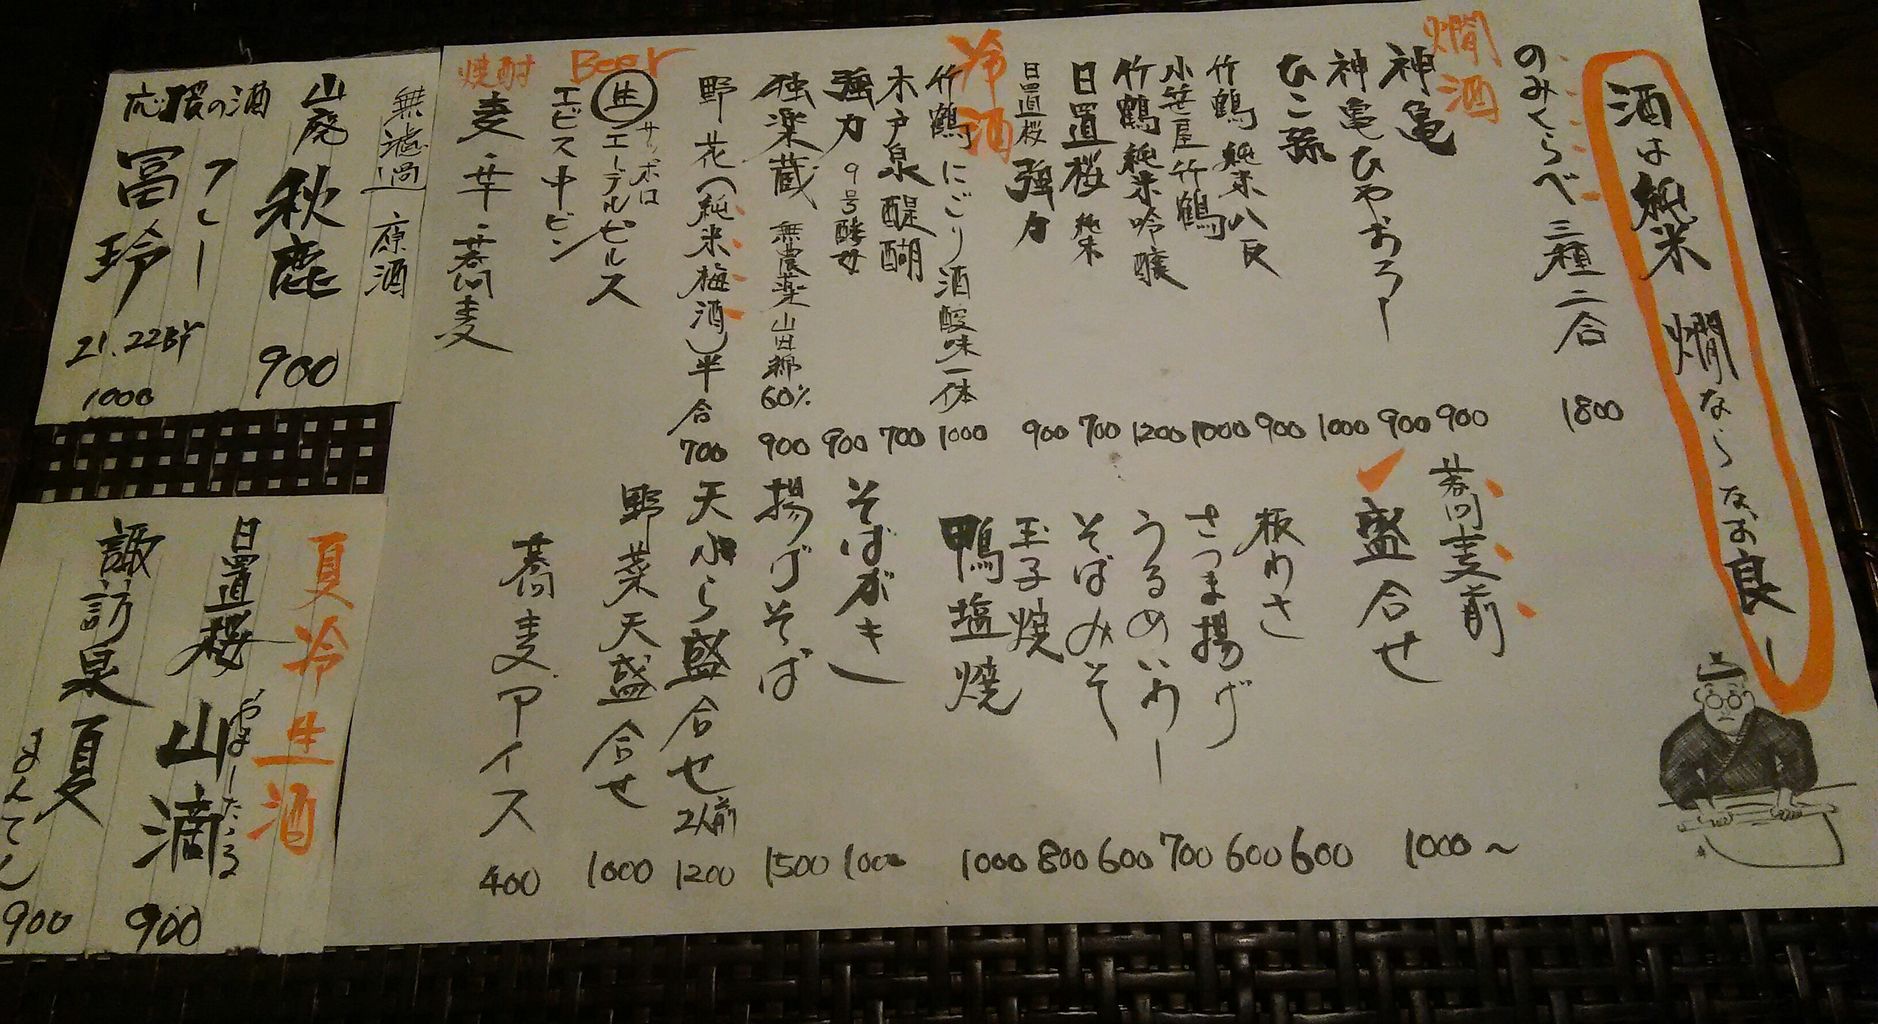 酒は純米 燗ならなお良し
のみくらべ 三種 二合 1800
燗酒
神亀 900
神亀ひやおろし 900
ひこ孫 1000
竹鶴 純米 八反 900
小笹屋竹鶴 1000
竹鶴 純米吟醸 1200
日置桜 純米 700
日置桜 強力 900
冷酒
竹鶴 にごり酒 酸味一体 1000
木戸泉 醍醐 700
強力 9号酵母 900
独楽蔵 無農薬山田錦60% 900
野花(純米梅酒)半合 700
Beer
サッポロ
生 エーデルピルス
エビス中ビン
焼酎
麦・芋・蕎麦
蕎麦前
盛合せ 1000~
板わさ 600
さつま揚げ 600
うるめいわし 700
そばみそ 600
玉子焼 800
鴨塩焼 1000
そばがき 1000
揚げそば 1500
天ぷら盛合せ 2人前 1200
野菜天盛合せ 1000
蕎麦アイス 400
無濾過原酒
山廃 秋鹿 900
応援の酒
冨玲
21.22BY
1000
夏冷生酒
日置桜 山滴 900
やましたたる
諏訪泉 夏
まんてん
900